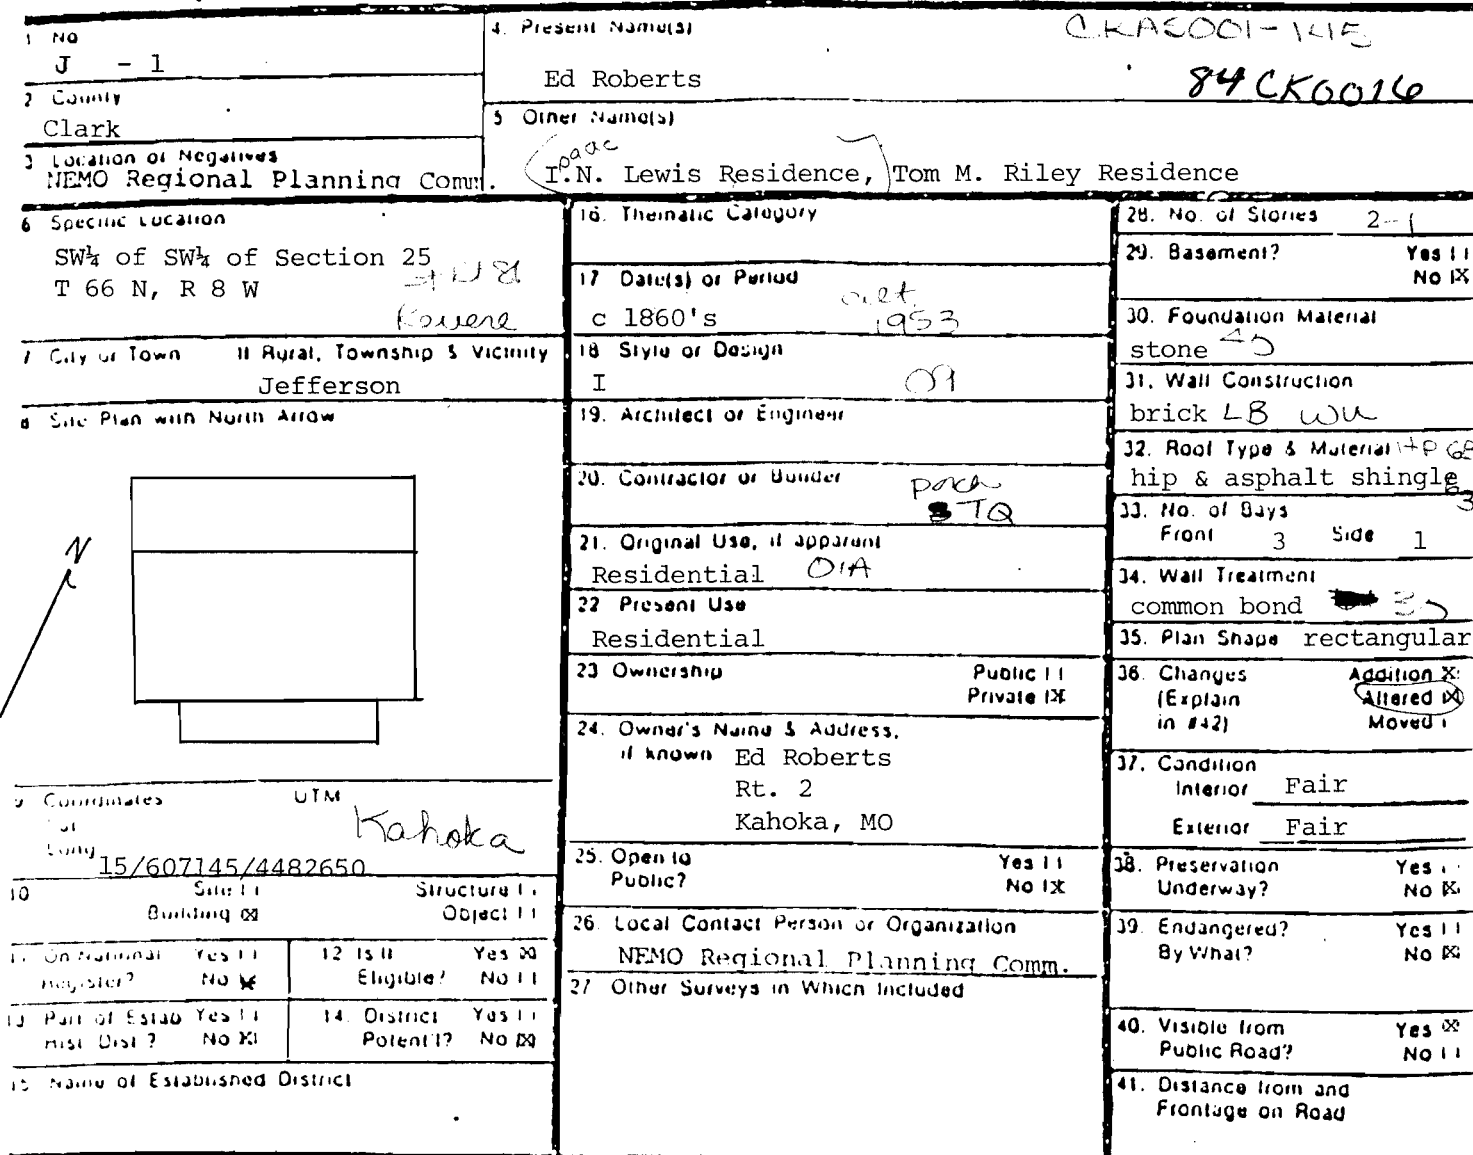 1 No
J - 1
2 County
Clark
3 Location of Negatives
NEMO Regional Planning Comm.
4. Present Name(s)
CKAS001-145
Ed Roberts
84CK0016
5 Other Name(s)
Isaac
I.N. Lewis Residence, Tom M. Riley Residence
6 Specific Location
SW¼ of SW¼ of Section 25
T 66 N, R 8 W
7 City or Town If Rural, Township & Vicinity
Jefferson
8 Site Plan with North Arrow
N
9 Coordinates UTM
Lat
Long
Kahoka
15/607145/4482650
10 Site [ ] Structure [ ]
Building [X] Object [ ]
11 On National Yes [ ]
Register? No [X]
12 Is It Yes [X]
Eligible? No [ ]
13 Part of Estab Yes [ ]
Hist Dist? No [X]
14. District Yes [ ]
Potent'l? No [X]
15 Name of Established District
16. Thematic Category
17 Date(s) or Period
c 1860's
alt
1953
18 Style or Design
I 09
19. Architect or Engineer
20. Contractor or Builder
porch
TQ
21. Original Use, if apparent
Residential 01A
22 Present Use
Residential
23 Ownership Public [ ]
Private [X]
24. Owner's Name & Address,
if known Ed Roberts
Rt. 2
Kahoka, MO
25. Open to Yes [ ]
Public? No [X]
26. Local Contact Person or Organization
NEMO Regional Planning Comm.
27 Other Surveys in Which Included
28. No. of Stories 2-1
29. Basement? Yes [ ]
No [X]
30. Foundation Material
stone 40
31. Wall Construction
brick LB WU
32. Roof Type & Material HP GB
hip & asphalt shingle
33. No. of Bays
Front 3 Side 1
34. Wall Treatment
common bond 30
35. Plan Shape rectangular
36. Changes Addition [X]
(Explain Altered [X]
in #42) Moved [ ]
37. Condition
Interior Fair
Exterior Fair
38. Preservation Yes [ ]
Underway? No [X]
39. Endangered? Yes [ ]
By What? No [X]
40. Visible from Yes [X]
Public Road? No [ ]
41. Distance from and
Frontage on Road